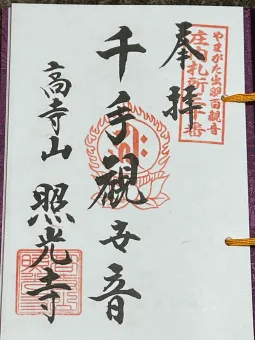 やまがた出羽百観音
庄内札所三十番
奉拝
千手観世音
高寺山
照光寺